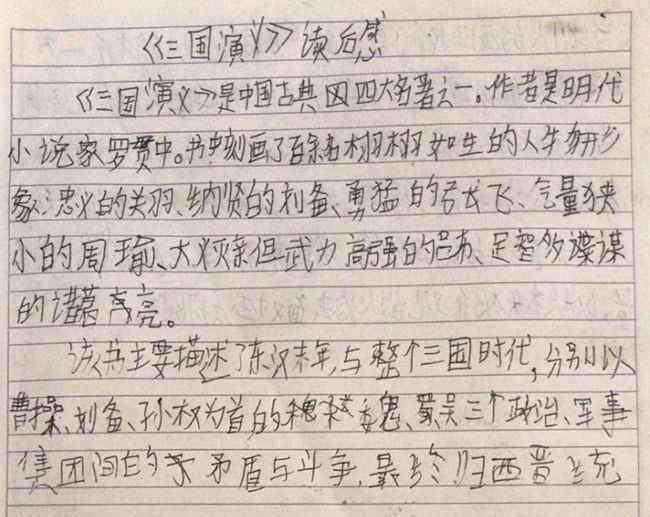 《三国演义》读后感
《三国演义》是中国古典四四大名著之一。作者是明代
小说家罗贯中。书中刻画了百余名栩栩如生的人物形
象：忠义的关羽、纳贤的刘备、勇猛的张飞、气量狭
小的周瑜、大但武力高强的吕布、足智多谋
的诸葛亮。
该书主要描述了东汉末年与整个三国时代，分别以
曹操、刘备、孙权为首的魏、蜀、吴三个政治、军事
集团间的矛盾与斗争，最终归西晋